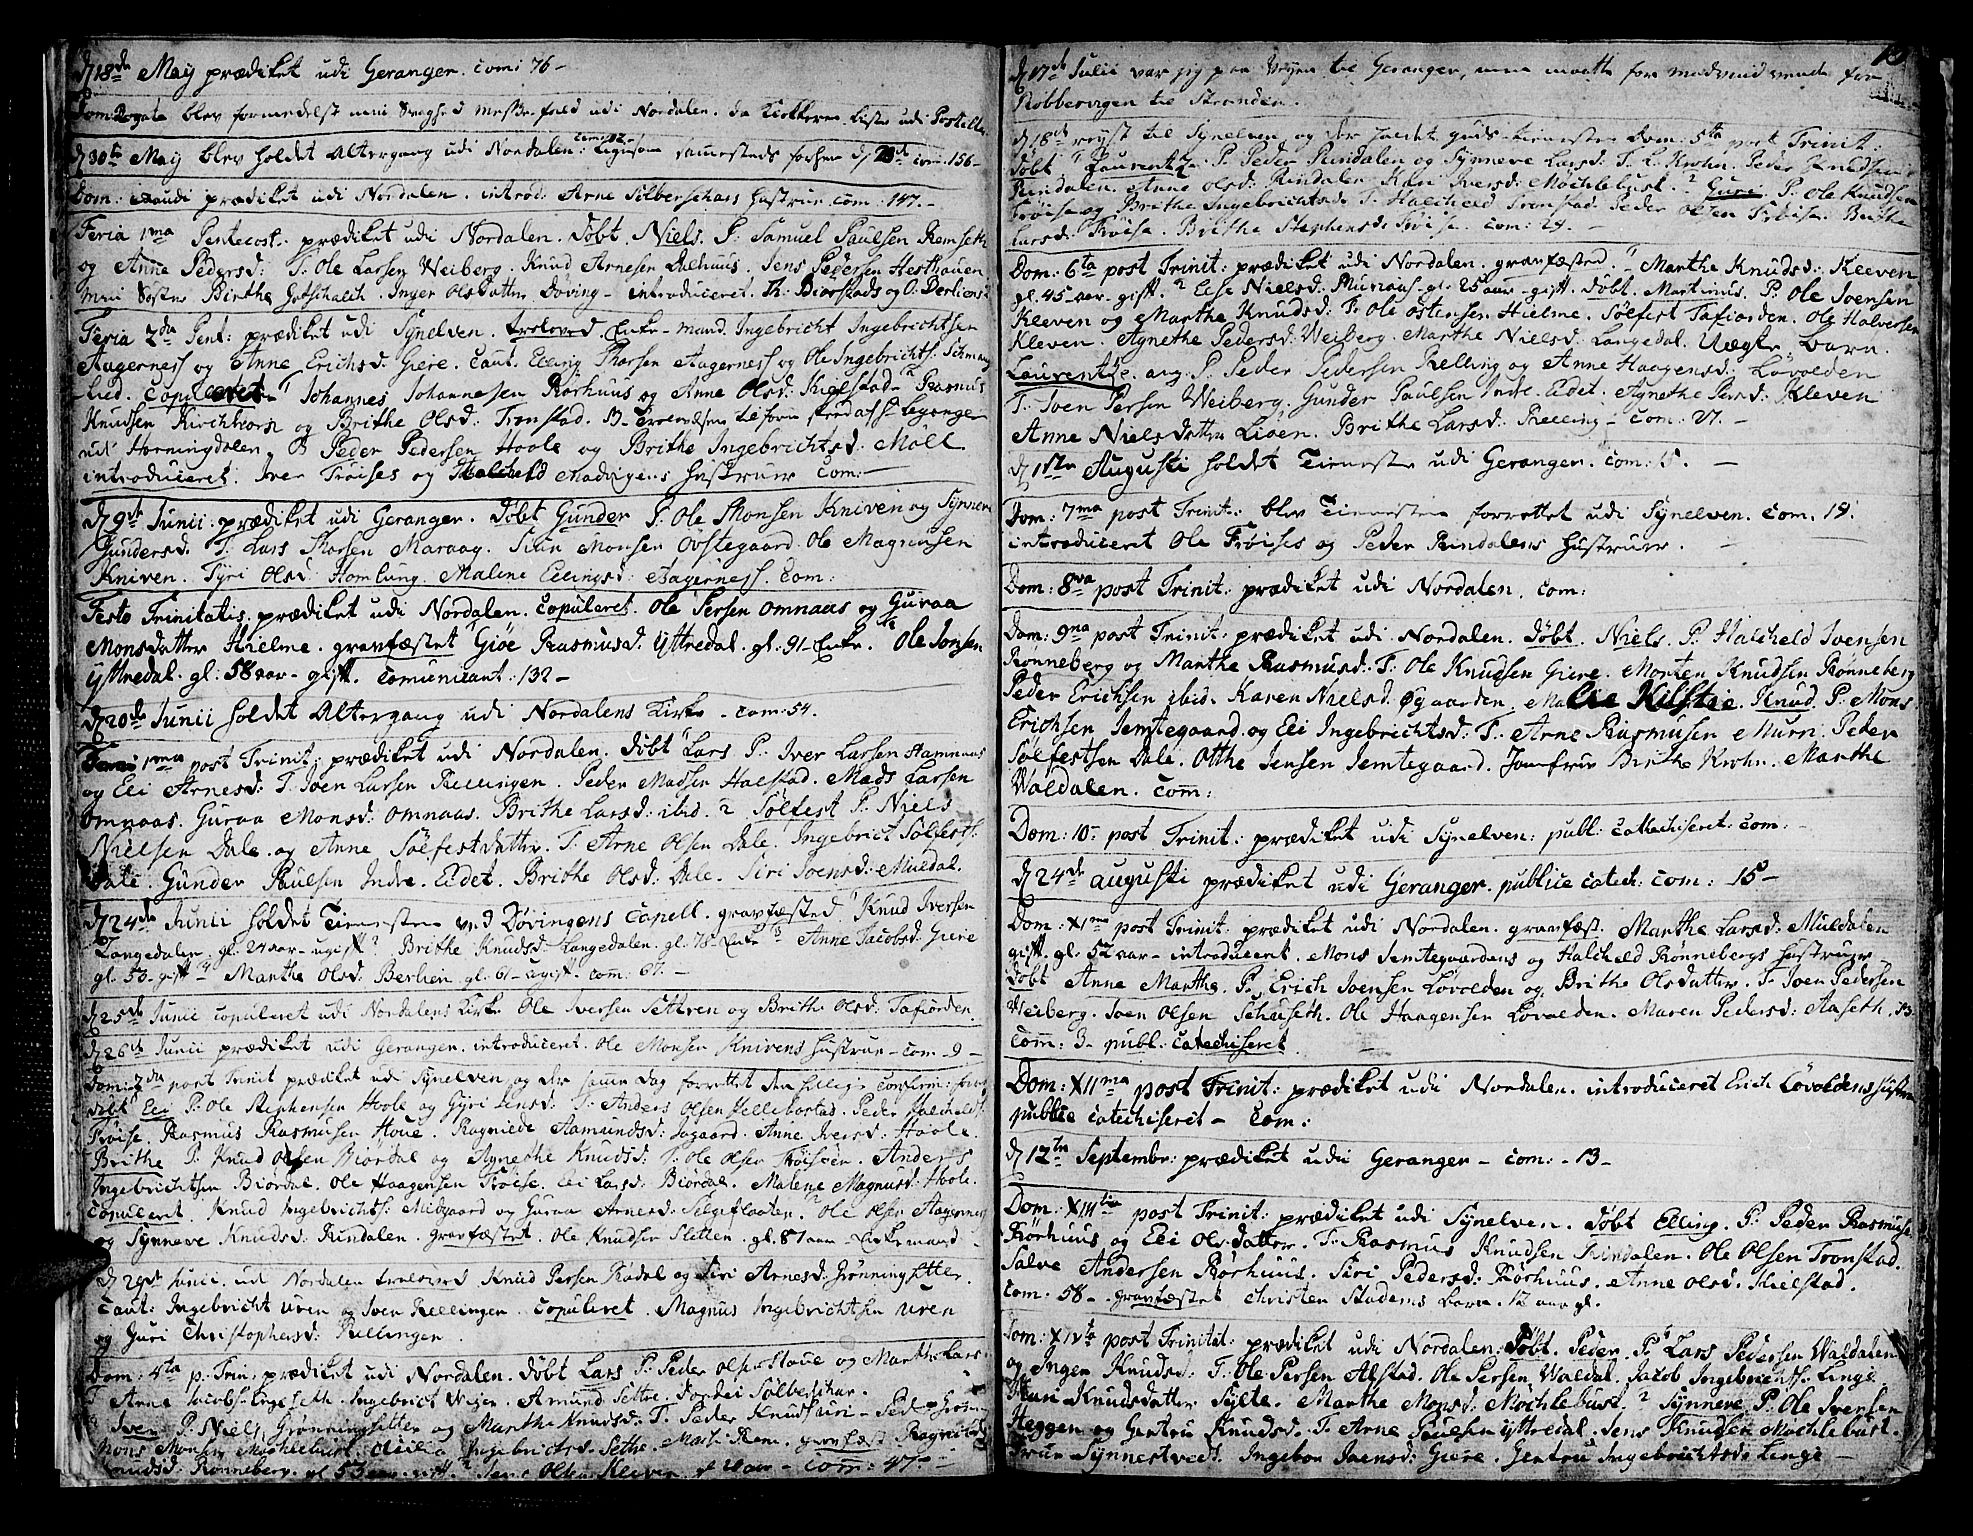 d 18de May prædiket udi Geranger. com: 76 -
Dom: Rogate blev formedelst min Svaghed Messe-fald udi Nordalen. da Klokkeren læste udi Postillen
d 30te May blev holdet Altergang udi Nordalen. com: 156 -
Dom: Exaudi prædiket udi Nordalen. introd: Arne Silbersehars Hustrue com: 147. -
Feria 1ma Pentecost: prædiket udi Nordalen. Døbt Niels. P: Samuel Paulsen Remseth
og Anne Pedersd: T: Ole Larsen Weiberg. Knud Arnesen Dalhuus. Jens Pedersen Hesthauen
min Søster Birthe Gotschalch. Inger Olsdatter Døving - introduceret. Th: Biørstads og O: Berliens
Feria 2da Pent: prædiket udi Synelven. troloved Enke-mand Ingebricht Ingebrichtsen
Aagerness og Anne Erichsd: Giere. Caut. Elling Thorsen Aagerness og Ole Ingebrichts:
lied. Copuleret 1 Johannes Johannesen Rørhuus og Anne Olsd: Kielstad - 2 Rasmus
Knudsen Kirchhorn og Brithe Olsd: Tronstad.
udi Horningdalen. 3 Peder Pedersen Hoole og Brithe Ingebrichtsd: Möll
introduceret. Iver Frøises og Halcheld Madvigens Hustruer com: -
d 9de Junii prædiket udi Geranger. Døbt Gunder P: Ole Monsen Kniven og Synneve
Gundersd. T: Lars Thorsen Maraag. Siun Monsen Ovstegaard. Ole Magnussen
Kniven. Tyri Olsd: Homlung. Malene Ellingsd: Aagerness. Com:
Festo Trinitatis prædiket udi Nordalen. Copuleret. Ole Persen Omnaas og Guraa
Monsdatter Hielme. gravfæstet 1 Giøe Rasmusd: Yttredal. gl: 91 - Enke. 2 Ole Jonsen
Yttredal. gl: 58 aar - gift. Comunicant: 132 -
d 20de Junii holdet Altergang udi Nordalens Kirke. com: 54.
1ma post Trinit: prædiket udi Nordalen. Døbt 1 Lars P: Iver Larsen Hamnaas
og Eli Arnesd: T: Joen Larsen Rellingen. Peder Madsen Halstad. Mads Larsen
Omnaas. Guraa Monsd: Omnaas. Brithe Larsd: ibid. 2 Sølfest P: Niels
Nielsen Dale. og Anne Sølfestdatter. T: Arne Olsen Dale. Ingebrict Sølfests:
Dale. Gunder Paulsen Indre-Eidet. Brithe Olsd: Dale. Siri Joensd: Muldal.
d 24de Junii holdet Tienesten ved Døvingens Capell. gravfæsted 1 Knud Iversen
Langedalen. gl: 24 aar - ugift. 2 Brithe Knudsd: Langedalen. gl: 78. Enke 3 Anne Jacobsd: Giere
gl. 50. gift 4 Marthe Olsd: Berlien gl: 61 - ugift. com: 67. -
d 25de Junii copuleret udi Nordalens Kirke Ole Iversen Settren og Brithe Olsd: Tafiorden.
d 26de Junii prædiket udi Geranger. introduceret. Ole Monsen Knivens Hustrue - com - 9 -
Dom: 3da post Trinit prædiket udi Synelven og der samme Dag forrettet den hellige Confirm:
Døbt Eli P: Ole Stephensen Hoole og Gyri Jensd: T: Anders Olsen Hellebostad. Peder Halchelds:
Frøise. Rasmus Rasmusen Houe. Ragnilde Aamundsd: Jagaard. Anne Iversd: Hoole.
Brithe P: Knud Olsen Biordal og Agnethe Knudsd: T: Ole Olsen Frøisen. Anders
Ingebrichtsen Biordal. Ole Haagensen Frøise. Eli Larsd: Biordal. Malene Magnusd: Hoole.
Copuleret. Knud Ingebrichts: Midgaard og Guraa Arnesd: Selgeflaaten. 2 Ole Olsen Aagerness
og Synneve Knudsd: Rindalen. gravfæstet. Ole Knudsen Sletten. gl. 87 aar Enkemand
d 29de Junii. udi Nordalen trolovet Knud Persen Rødal og Siri Arnesd: Grønningsetter
Caut: Ingebricht Uren og Iver Rellingen. Copuleret. Magnus Ingebrichtsen Uren
og Guri Christophersd: Rellingen.
Dom: 4ta p: Trin: prædiket udi Nordalen. Døbt Lars P: Peder Olsen Houe og Marthe Lars-
T: Arne Jacobs- Engeseth. Ingebrict Weien. Amund Settre. Dordei Sølbersehar.
2 Iver P: Niels Grønningsetter og Marthe Knudsd: T: Peder Knuds: Uri - Peder
Mons Monsen Møchlebust. Cicilia Ingebrictsd: Settre. Marte Rem. gravfæst Ragnilde
Knudsd: Rønneberg. gl 53 aar. gift. 2 Jens Olsen Kleven - com: 47 -
d 17de Julii var jeg paa Veyen til Geranger, men maatte for Modvind vende for
Robbervigen til Stranden.
d 18de reyst til Synelven og der holdet Guds-tieneste Dom: 5ta post Trinit:
Døbt 1 Laurentze. P: Peder Rindalen og Synneve Larsd: T: L: Krohn. Peder Knudsen
Rindalen. Anne Olsd: Rindalen Kari Iversd: Møchlebust. 2 Guri. P: Ole Knudsen
Frøise og Brithe Ingebrichtsd: T: Halcheld Tronstad. Peder Olsen Frøise. Brithe
Larsd: Frøise. Brithe Stephensd: Frøise. com: 24. -
Dom: 6ta post Trinit: prædiket udi Nordalen. gravfæsted. 1 Marthe Knudsd: Kleven
gl. 45 aar - gift. 2 Else Nielsd: Muraas gl. 25 aar - gift. Døbt. Martinus. P: Ole Joensen
Kleven og Marthe Knudsd: T: Ole Ostensen Hielme. Sølfest Tafiorden. Ole Halversen
Kleven. Agnethe Pedersd: Weiberg. Marthe Nielsd: Langedal. Uægte barn.
Laurentze. ang. P: Peder Pedersen Relling og Anne Haagensd: Løvolden
T: Joen Persen Weiberg. Gunder Paulsen Indre-Eidet. Agnethe Persd: Kleven
Anne Nielsdatter Lioen. Brithe Larsd: Relling - com: 27. -
d 1ste Augusti holdet Tieneste udi Geranger. com: 15. -
Dom: 7ma post Trinit: blev Tienesten forrettet udi Synelven. com. 19.
introduceret Ole Frøises og Peder Rindalens Hustruer. -
Dom: 8va post Trinit: prædiket udi Nordalen. com:
Dom: 9na post Trinit: prædiket udi Nordalen. Døbt. Niels. P: Halcheld Ivensen
Rønneberg og Marthe Rasmusd: T: Ole Knudsen Giere. Morten Knudsen Rønneberg
Peder Erichsen ibid. Karen Nielsd. Øgaarden. Knud. P: Mons
Erichsen Jemtegaard og Eli Ingebrichtsd: T: Arne Rasmusen Muri. Peder
Sølfestsen Dale. Otthe Jensen Jemtegaard. Jomfrue Birthe Krohn. Marthe
Waldalen. Com:
Dom: 10- post Trinit: prædiket udi Synelven: publ: catechiseret: com: -
d 24de Augusti prædiket udi Geranger. publice catech: com: 15 -
Dom: XIma post Trinit: prædiket udi Nordalen. gravfæst. Marthe Larsd: Muldalen
gift. gl: 52 aar - introduceret. Mons Jemtegaardens og Halcheld Rønnebergs Hustruer
Døbt Anne Marthe. P: Erich Joensen Løvolden og Brithe Olsdatter. T: Joen Pedersen
Weiberg. Joen Olsen Schuseth. Ole Haagensen Løvolden. Maren Pedersd: Aaseth.
com: 3 - publ: catechiseret
Dom: XIIma post Trinit: prædiket udi Nordalen. introduceret Erich Løvoldens Hustrue
publice catechiseret - com:
d 12te Septembr: prædiket udi Geranger - com: - 13 -
Dom: XIIItia post Trinit: prædiket udi Synelven. Døbt Elling. P: Peder Rasmuss:
Rørhuus og Eli Olsdatter. T: Rasmus Knudsen Rindalen. Ole Olsen Tronstad.
Salve Andersen Rørhuus. Siri Pedersd: Rørhuus. Anne Olsd: Hielstad.
com. 58 - gravfæstet Christen Stadems barn. 12 aar gl.
Dom: XIVta post Trinitat: prædiket udi Nordalen. Døbt. Peder. P: Lars Pedersen Waldalen
og Ingen Knudsd: T: Ole Persen Alstad. Ole Persen Waldal. Jacob Ingebrichts: Linge
Kari Knudsdatter Sylte. Marthe Monsd: Møchlebust. 2 Synneve P: Ole Iversen
Heggen og Gertru Knudsd: T: Arne Poulsen Yttredal. Jens Knudsen Møchlebust.
Synnestvedt. Ingebor Joensd: Giere. Gertru Ingebrichtsd: Linge -